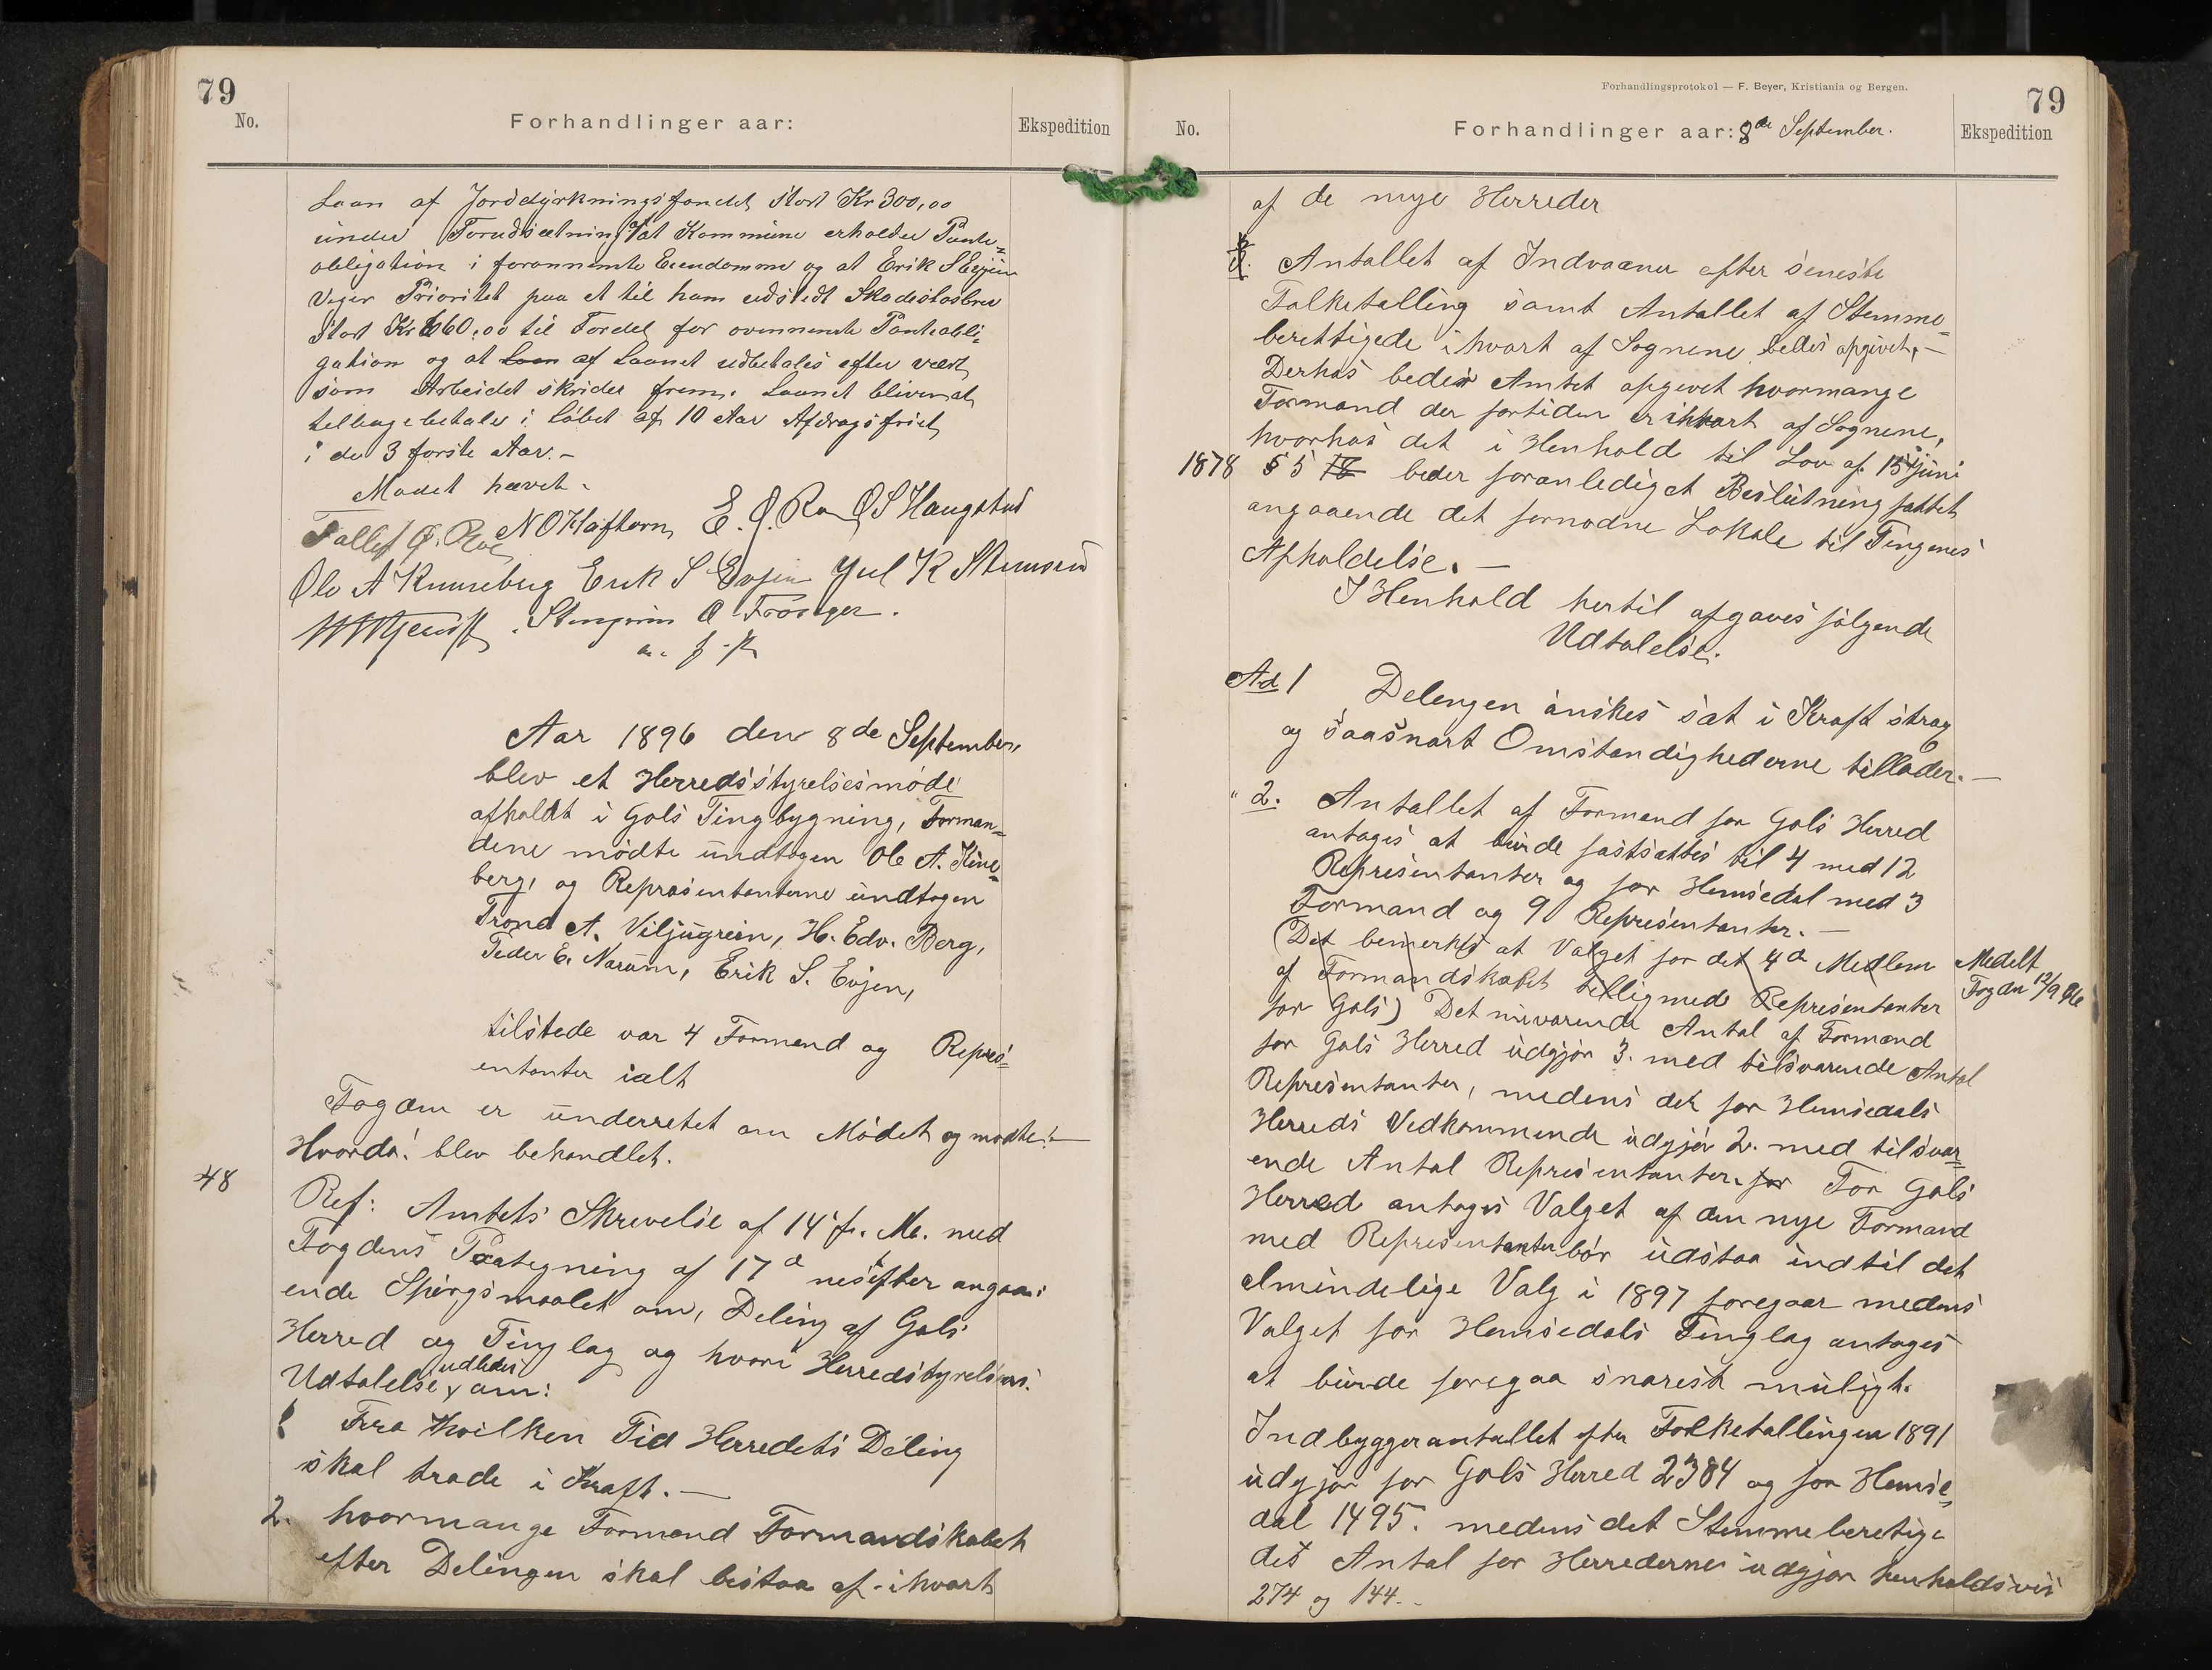 79
No.
Forhandlinger aar:
Ekspedition
Laan af Jorddyrkningsfondet stort Kr 300,00
under Forudsætning at Kommune erholder Pante-
obligation i forannemte Eiendomme og at Erik S Evjen
viger Prioritet paa et til ham udstedt Skadesløsbrev
stort Kr 660,00 til Fordel for ovennemte Panteobli-
gation og at Laan af Laanet udbetales efter vært
som Arbeidet skrider frem. Laanet bliver at
tilbagebetale i Løbet af 10 Aar Afdragsfrit
i de 3 første Aar.-
Mødet hævet.
N O Kaftorn E. O. Ro O S Haugstad
Tollef O. Roe
Ole A Kinneberg Erik S Evjen Juel K Stensrud
Stengrim O Frøsager.
Aar 1896 den 8de September,
blev et Herredsstyrelsesmøde
afholdt i Gols Tingbygning, Forman-
dene mødte undtagen Ole A. Kine-
berg, og Repræsentanterne undtagen
Trond A. Viljugrein, H. Edv. Berg,
Peder E. Narum, Erik S. Evjen,
tilstede var 4 Formænd og Repres-
entanter ialt
Fogden er underrettet om Mødet og mødte.-
Hvorda! blev behandlet.
48
Ref: Amtets Skrivelse af 14' f. M. med
Fogdens Paategning af 17de næstefter angaa-
ende Spørgsmaalet om, Deling af Gols
Herred og Tinglag og hvori Herredstyrelsens
udbedes
Udtalelse, om:
1 Fra hvilken Tid Herredets Deling
skal træde i Kraft.-
2. hvormange Formænd Formandskabet
efter Delingen skal bestaa af i hvert
Forhandlingsprotokol — F. Beyer, Kristiania og Bergen.
79
No.
Forhandlinger aar: 8de September.
Ekspedition
af de nye Herreder
3. Antallet af Indvaaner efter seneste
Folketælling samt Antallet af Stemme-
berettigede i hvert af Sognene bedes opgivet,-
Derhos beder Amtet opgivet hvormange
Formænd der fortiden er i hvert af Sognene,
hvorhos det i Henhold til Lov af 15 juni
1878 § 5 18 beder foranlediget Beslutning fattet
angaaende det fornødne Lokale til Tingenes
Afholdelse.-
I Henhold hertil afgaves følgende
Udtalelse.
Ad 1 Delingen ønskes sat i Kraft strax
og saasnart Omstændighederne tillader.-
" 2. Antallet af Formænd for Gols Herred
antages at burde fastsættes til 4 med 12
Representanter og for Hemsedal med 3
Formænd og 9 Representanter.-
(Det bemerkes at Valget for det 4de Medlem
af Formandskabet tilligmed Representanter
for Gols) Det nuværende Antal af Formænd
for Gols Herred udgjør 3. med tilsvarende Antal
Representanter, medens det for Hemsedals
Herreds Vedkommende udgjør 2. med tilsvar-
ende Antal Representanter. for For Gols
Herred antages Valget af den nye Formand
med Representanter bør udstaa indtil det
almindelige Valg i 1897 foregaar medens
Valget for Hemsedals Tinglag antages
at burde foregaa snarest muligt.
Indbyggerantallet efter Folketællingen 1891
udgjør for Gols Herred 2384 og for Hemse-
dal 1495. medens det Stemmeberetige
det Antal for Herrederne udgjør henholdsvis
274 og 144.-
Medelt
Fogden 12/9 96